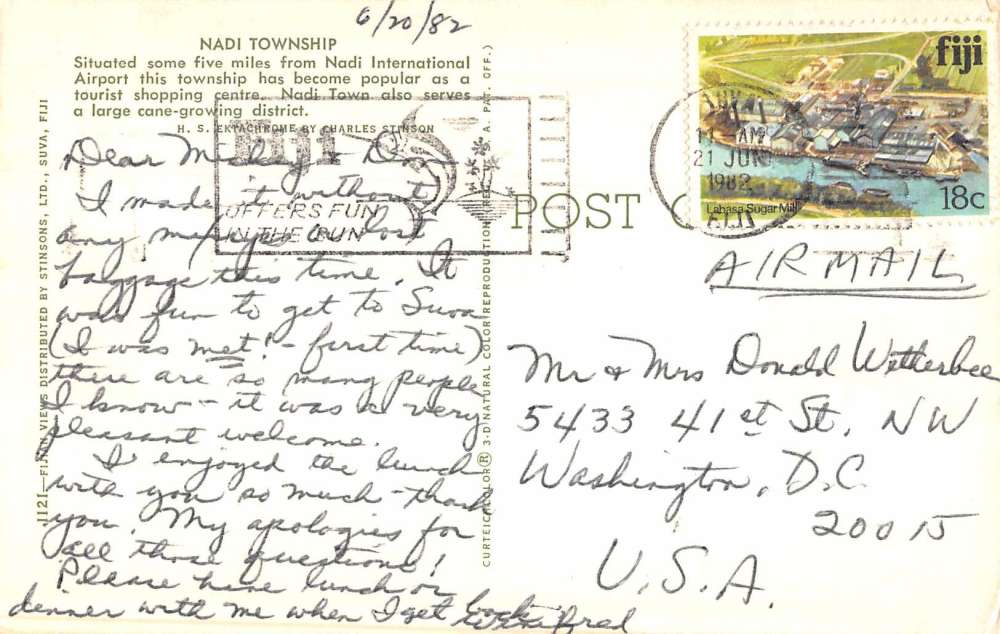 6/20/82
NADI TOWNSHIP
Situated some five miles from Nadi International
Airport this township has become popular as a
tourist shopping centre. Nadi Town also serves
a large cane-growing district.
H. S. EKTACHROME BY CHARLES STINSON
Dear & Don
I made it without
any or lost
baggage this time. It
was fun to get to Suva
(I was met! - first time)
there are so many people
I know - it was a very
pleasant welcome.
I enjoyed the lunch
with you so much - thank
you. My apologies for
all those questions!
Please have lunch or
dinner with me when I get back
Winifred
J121—FIJIAN VIEWS DISTRIBUTED BY STINSONS, LTD., SUVA, FIJI
CURTEICHCOLOR® 3-D NATURAL COLOR REPRODUCTION (REG. U.S.A. PAT. OFF.)
Fiji
OFFERS FUN
IN THE SUN
POST
SUVA
11 AM
21 JUN
1982
FIJI
fiji
Labasa Sugar Mill
18c
AIRMAIL
Mr & Mrs Donald Wetherbee
5433 41st St, NW
Washington, D.C.
20015
U.S.A.